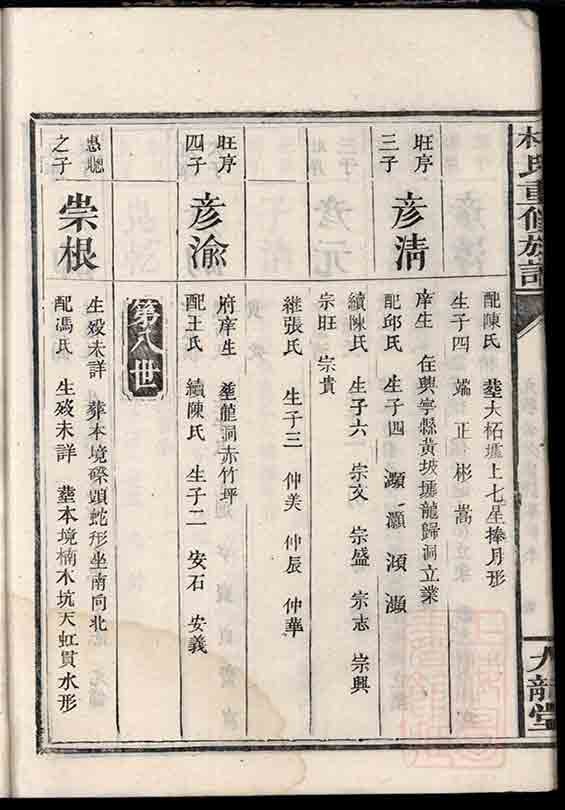 林氏重修族譜
九龍堂
配陳氏 塟大柘墟上七星捧月形
生子四 端 正 彬 嵩
旺序
三子
彥清
庠生 在興寧縣黃坡墟龍歸洞立業
配邱氏 生子四 灝 灝 澒 灝
續陳氏 生子六 宗文 宗盛 宗志 宗興
宗旺 宗貴
継張氏 生子三 仲美 仲辰 仲華
旺序
四子
彥渝
府庠生 塟龍洞赤竹坪
配王氏 續陳氏 生子二 安石 安義
第八世
聰
之子
崇根
生歿未詳 葬本境磜頭蛇形坐南向北
配馮氏 生歿未詳 塟本境楠木坑天虹貫水形